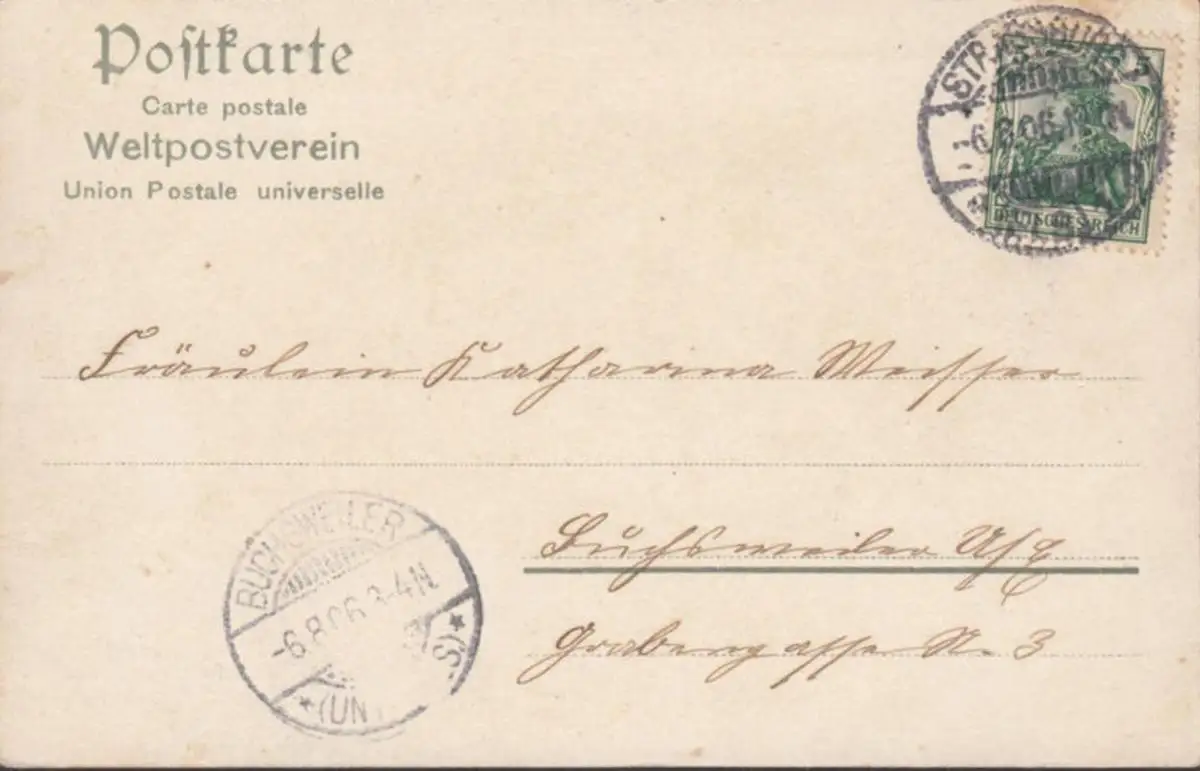 Postkarte
Carte postale
Weltpostverein
Union Postale universelle
STRASSBURG
-6.8.06.
DEUTSCHES REICH
Fräulein Katharina Weisser
Buchsweiler U/E
Grabengasse N. 3
BUCHSWEILER
-6.8.06.3-4N.
*(UN S)*